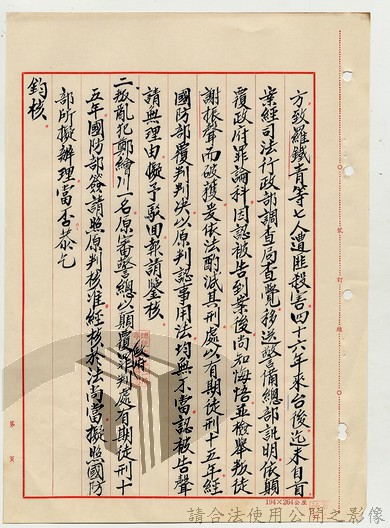 方致羅鐵青等七人遭匪殺害四十六年來台後迄未自首
案經司法行政部調查局查覺移送警備總部訊明依顛
覆政府罪論科因認被告到案後尚知悔悟並檢舉叛徒
謝振聲而破獲爰依法酌減其刑處以有期徒刑十五年經
國防部覆判判決以原判認事用法均無不當認被告聲
請無理由擬予駁回報請鑒核
二叛亂犯鄭繪川一名原審警總以顛覆政府罪判處有期徒刑十
五年國防部發請照原判核准經核於法尚當擬照國防
部所擬辦理當否恭乞
鈞核
裝
訂
線
第 頁
194×264公厘
請合法使用公開之影像